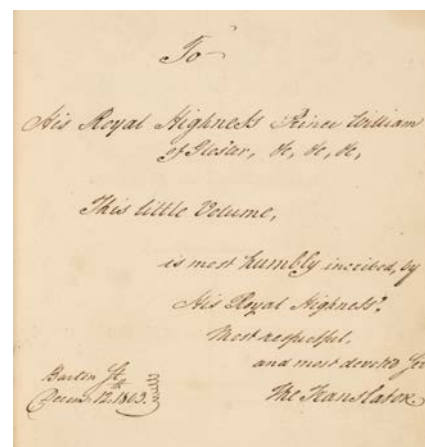 To
His Royal Highness Prince William
of Glos'ar, &c, &c, &c,
This little Volume,
is most humbly inscribed, by
His Royal Highness's
Most respectful,
and most devoted
The Translator.
Barton St
Decem 12. 1803.